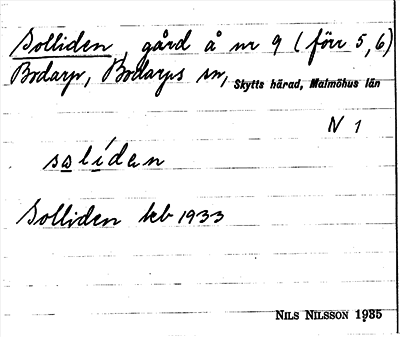 Solliden, gård å nr 9 (förr 5, 6)
Bodarp, Bodarps sn, Skytts härad, Malmöhus län
N 1
salíden
Solliden kb 1933
NILS NILSSON 1935